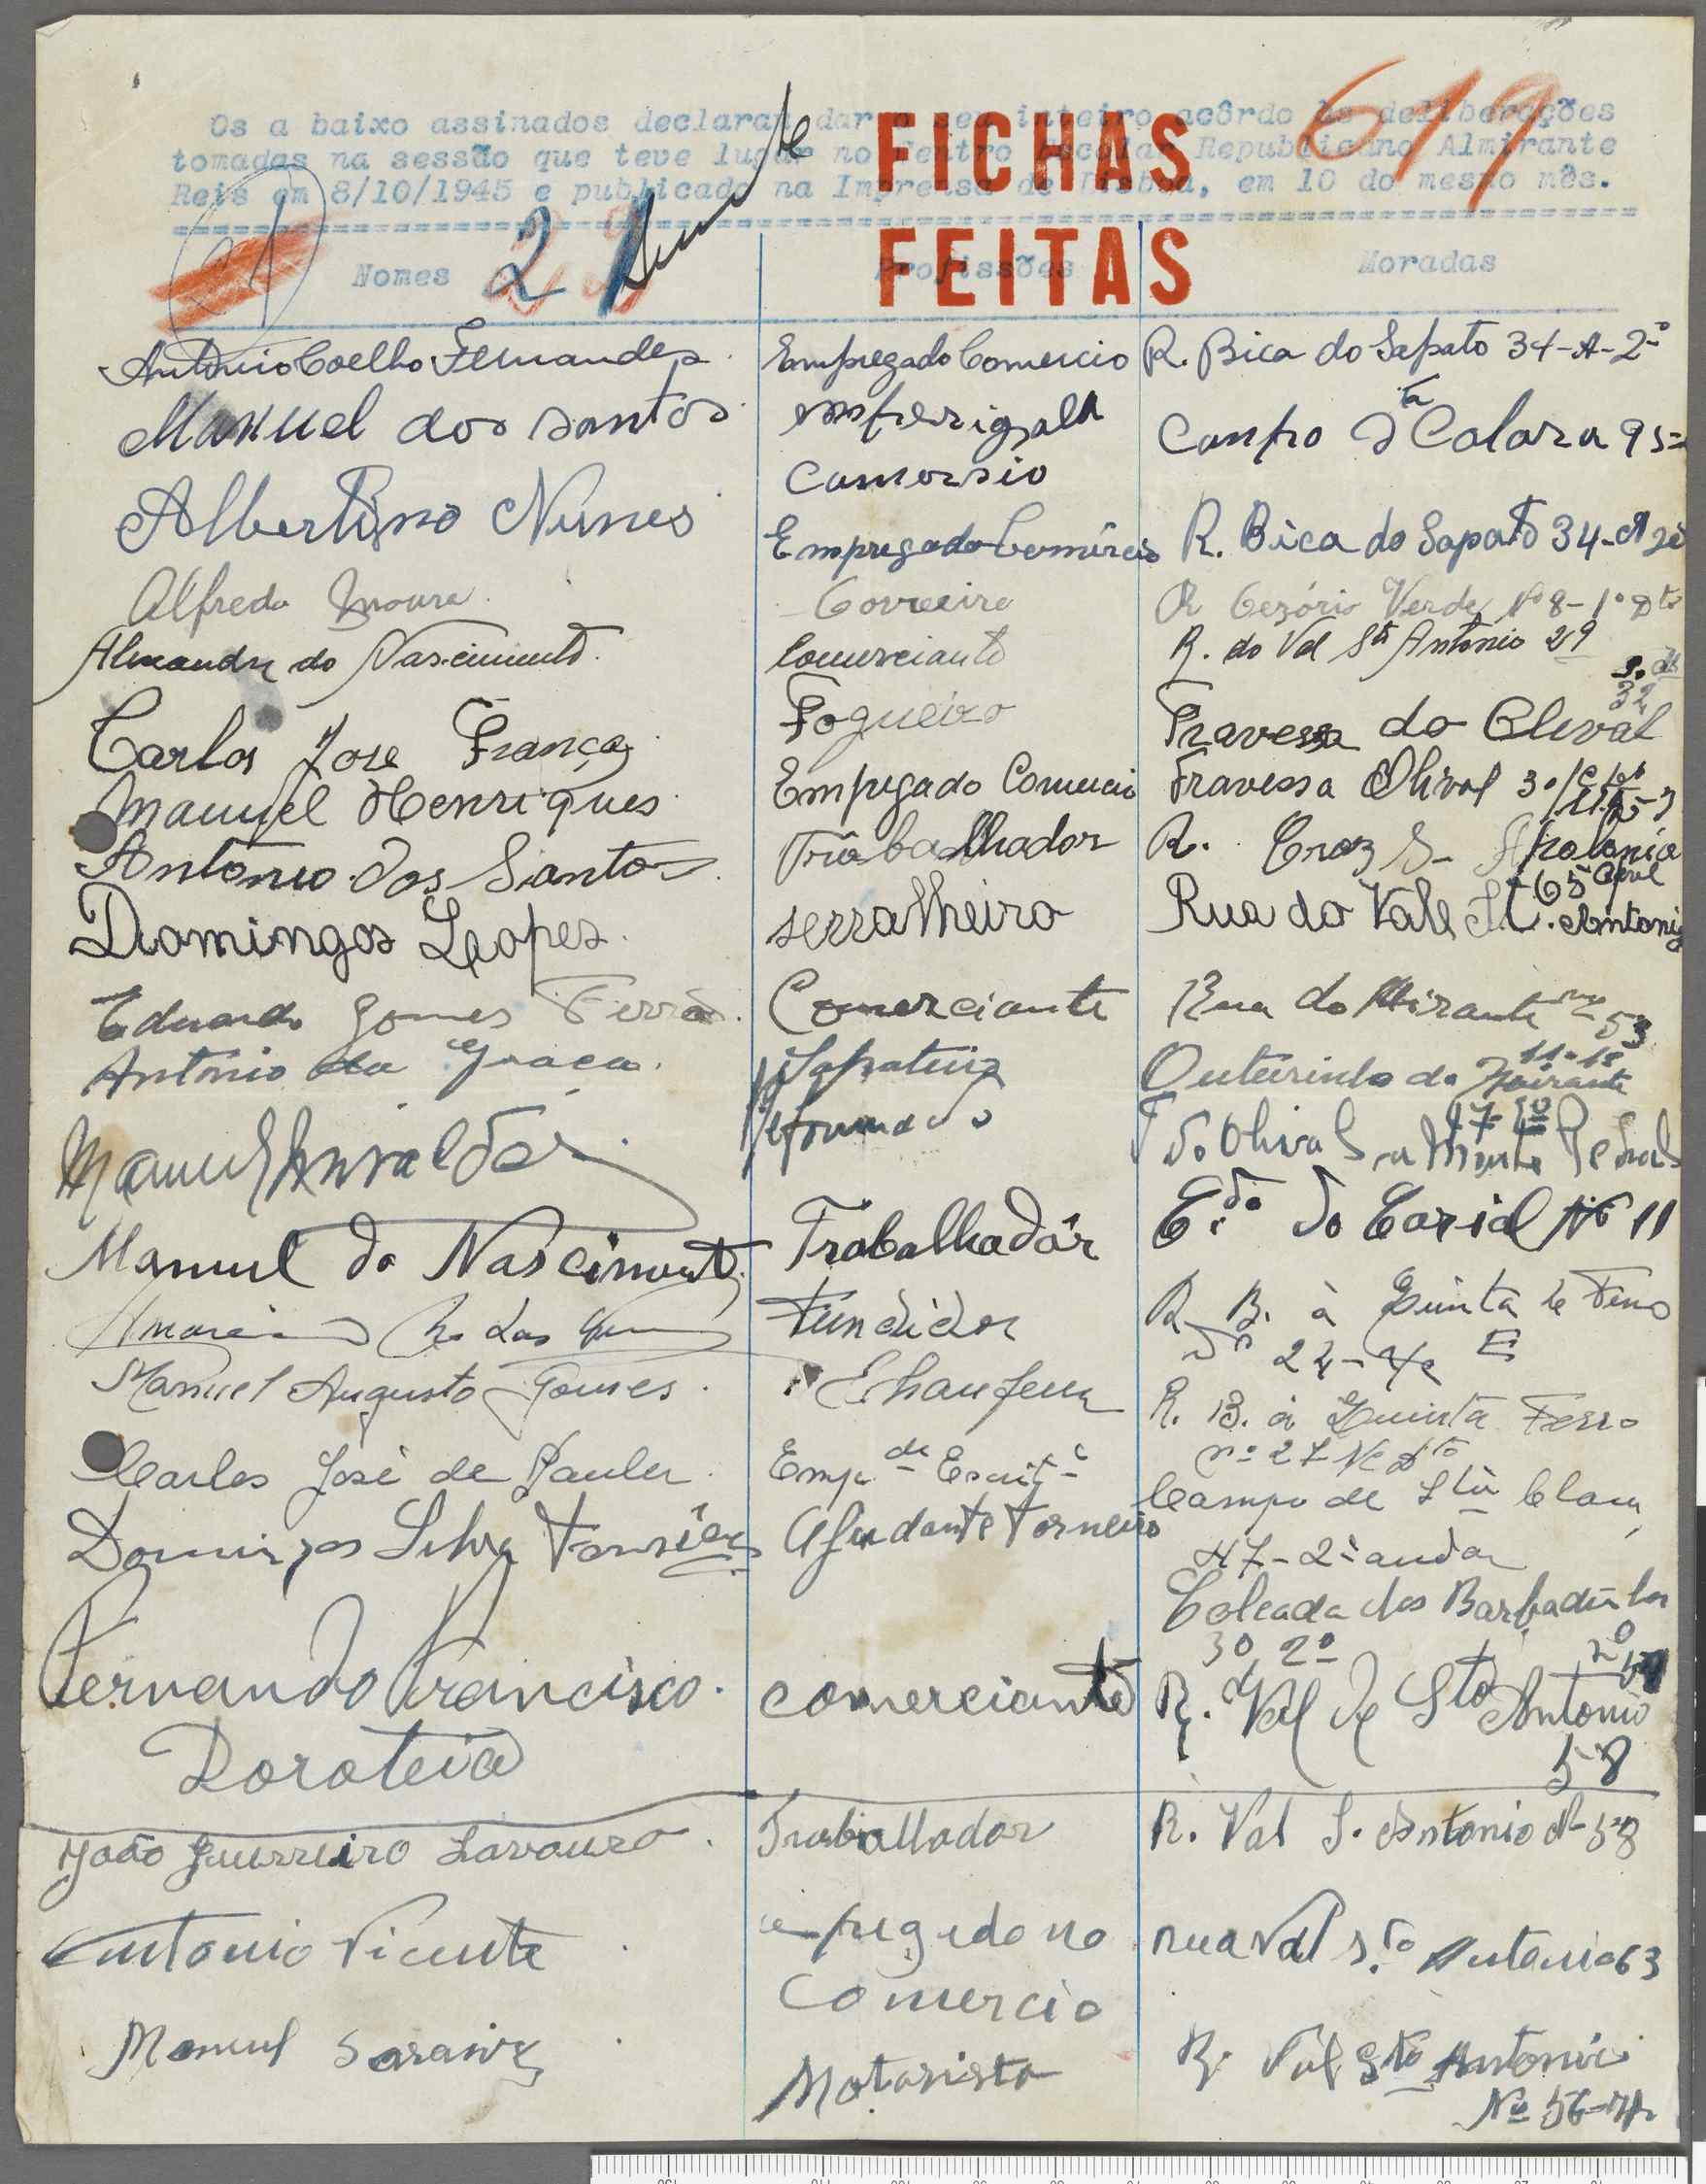 619
Os a baixo assinados declaram dar o seu inteiro acôrdo às deliberações
tomadas na sessão que teve lugar no Centro Escolar Republicano Almirante
Reis em 8/10/1945 e publicado na Imprensa de Lisboa, em 10 do mesmo mês.
FICHAS
FEITAS
Nomes Profissões Moradas
António Coelho Fernandes Empregado Comercio R. Bica do Sapato 34-A-2º
Manuel dos Santos Campo Sta Calara 95
camorsio
Albertino Nunes Empregado Comércio R. Bica do Sapato 34-A 2º
Alfredo Moura Correeiro R Cezário Verde Nº 8-1º Dto
Alexandre do Nascimento Comerciante R. do Val Stº António 29
Carlos Jose França Fogueiro Travessa do Olival
Manuel Henriques Empregado Comercio Travessa Olival
António dos Santos Trabalhador R. Cruz S. Apolonia
Domingos Lopes serralheiro Rua do Vale St. Antonio
Eduardo Gomes Ferrão Comerciante Rua do Mirante 53
António da Graça Sapateiro Outeirinho do Mirante
Manuel Reformado T. do Olival
Manuel do Nascimento Trabalhadôr do Carial Nº 11
Fundidor R. B. à Quinta
Manuel Augusto Gomes Chaufeur R. B. à Quinta Ferro
Carlos José de Paula Emp. de Escritº Campo de Stª Clara
Domingos Silva Ajudante Torneiro
47-2º andar
Calçada dos Barbadinhos
30 2º
Fernando Francisco comerciante R. Val de Sto Antonio
Doroteia 58
João Guerreiro Lavouro Trabalhador R. Val S. Antonio Nº 58
Antonio Vicente empregado no rua Val sto Antonio 63
Comercio
Manuel Saraiva Motorista R. Val Sto António
Nº 56